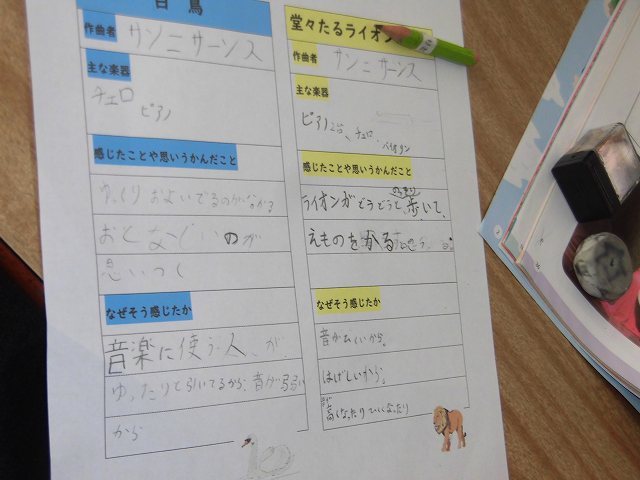 白鳥
作曲者
サンニサーンス
主な楽器
チェロ
ピアノ
感じたことや思いうかんだこと
ゆっくりおよいでるのが
おとなしいのが
思いつく
なぜそう感じたか
音楽に使う人が
ゆったりと引いてるから、音が弱い
から
堂々たるライオン
作曲者
サンニサーンス
主な楽器
ピアノ2台、チェロ、バイオリン
感じたことや思いうかんだこと
ライオンがどうどうと歩いて、
えものをかる
なぜそう感じたか
音がひくいから。
はげしいから。
音が
高くなったりひくくなったり